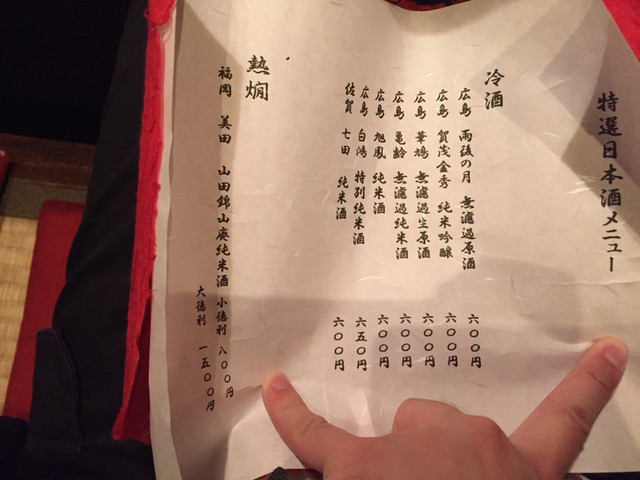 特選日本酒メニュー
冷酒
広島 雨後の月 無濾過原酒 六〇〇円
広島 賀茂金秀 純米吟醸 六〇〇円
広島 華鳩 無濾過生原酒 六〇〇円
広島 亀齢 無濾過純米酒 六〇〇円
広島 旭鳳 純米酒 六〇〇円
広島 白鴻 特別純米酒 六五〇円
佐賀 七田 純米酒 六〇〇円
熱燗
福岡 美田 山田錦山廃純米酒 小徳利 八〇〇円
大徳利 一五〇〇円